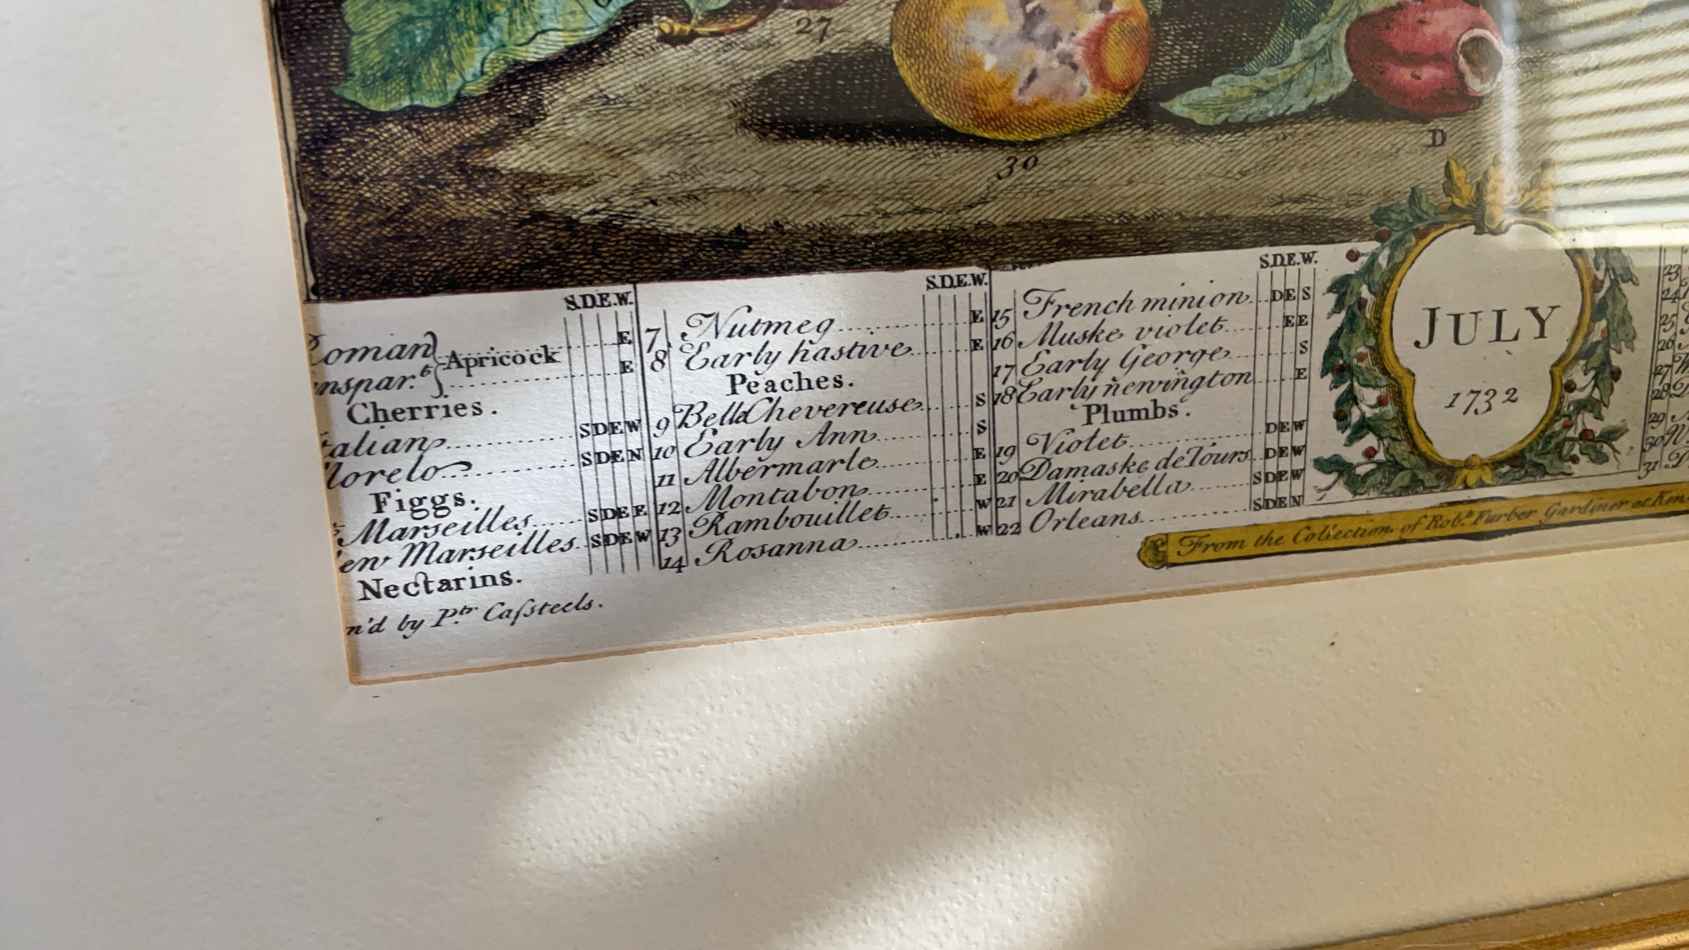 27
30
D
S.D.E.W.
Apricock E
E
Cherries.
SDEW
SDEN
Figgs.
Marseilles SDEE
Marseilles. SDEW
Nectarins.
by Ptr. Caſsteels.
S.D.E.W.
7 Nutmeg E
8 Early hastive E
Peaches.
9 Bell Chevereuse S
10 Early Ann S
11 Albermarle E
12 Montabon E
13 Rambouillet W
14 Rosanna W
S.D.E.W.
15 French minion DES
16 Muske violet EE
17 Early George S
18 Early newington E
Plumbs.
19 Violet DEW
20 Damaske de Tours DEW
21 Mirabella SDEW
22 Orleans SDEN
JULY
1732
From the Collection of Robt. Furber Gardiner at
23
24
25
26
27
28
29
30
31